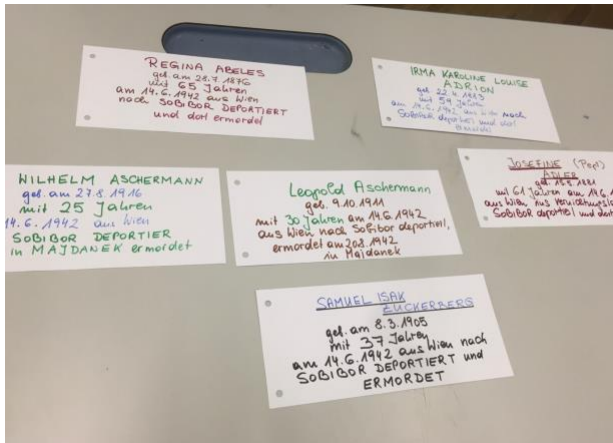 REGINA ABELES
geb. am 28.7.1876
mit 65 Jahren
am 14.6.1942 aus Wien
nach SOBIBOR DEPORTIERT
und dort ermordet
IRMA KAROLINE LOUISE
ADRION
geb. 22.4.1883
mit 59 Jahren
am 14.6.1942 aus Wien nach
SOBIBOR deportiert und dort
WILHELM ASCHERMANN
geb. am 27.8.1916
mit 25 Jahren
14.6.1942 aus Wien
SOBIBOR DEPORTIER
in MAJDANEK ermordet
Leopold Aschermann
geb. 9.10.1911
mit 30 Jahren am 14.6.1942
aus Wien nach Sobibor deportiert,
ermordet am 20.8.1942
in Majdanek
JOSEFINE (Pepi)
ADLER
geb. 15.5.1881
mit 61 Jahren am 14.6.
aus Wien ins
SOBIBOR deportiert und do
SAMUEL ISAK
ZUCKERBERG
geb. am 8.3.1905
mit 37 Jahren
am 14.6.1942 aus Wien nach
SOBIBOR DEPORTIERT und
ERMORDET